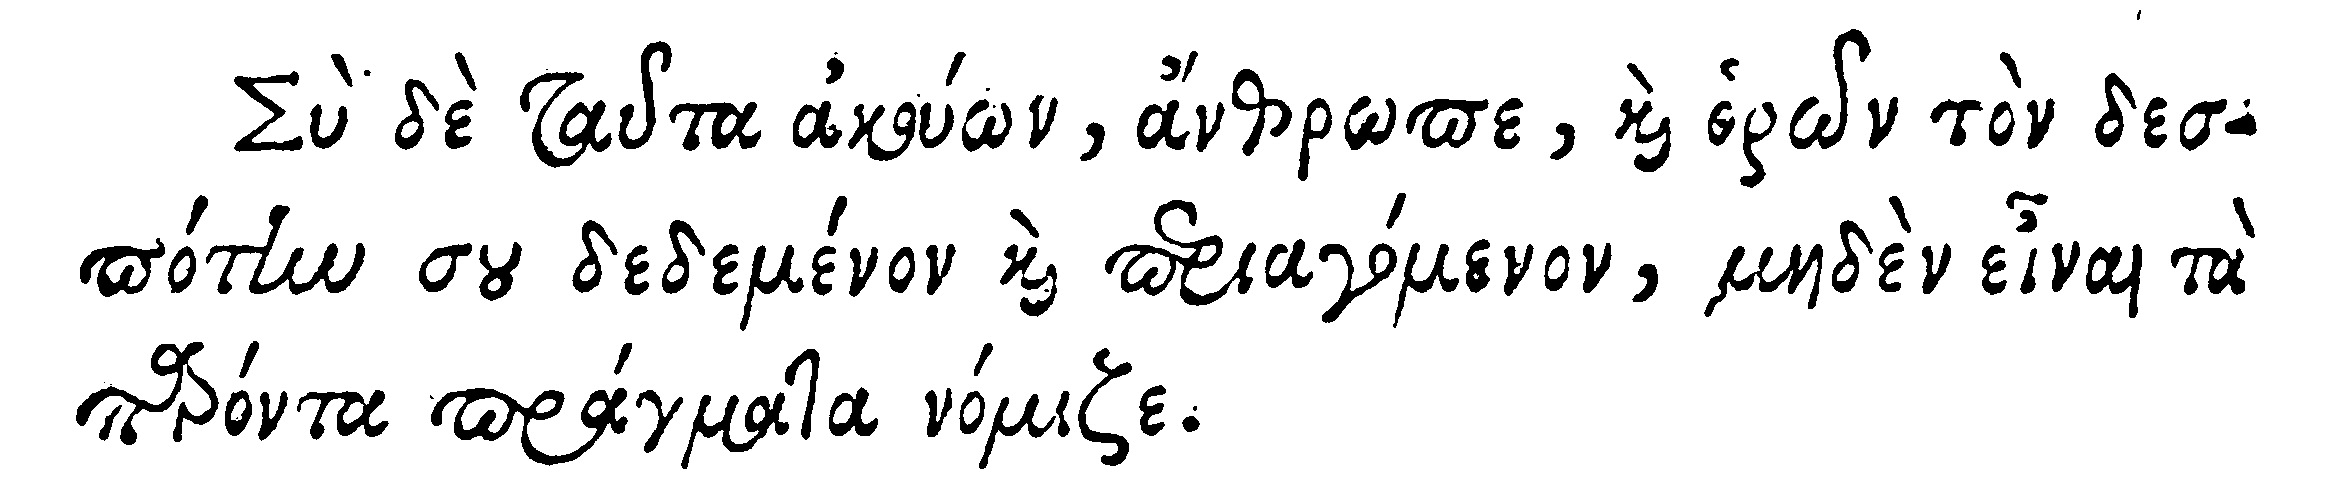 Σὺ δὲ ταῦτα ἀκούων, ἄνθρωπε, καὶ ὁρῶν τὸν δεσ-
πότην σου δεδεμένον καὶ περιαγόμενον, μηδὲν εἶναι τὰ
παρόντα πράγματα νόμιζε.